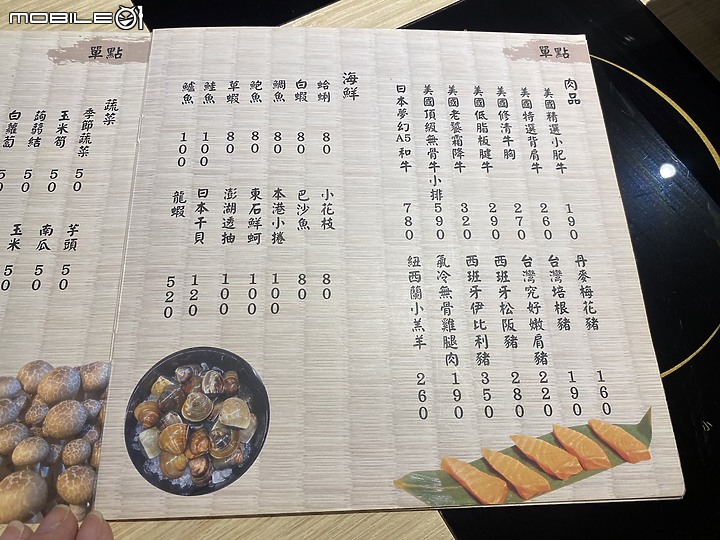 MOBILE01
單點
肉品
美國精選小肥牛 190
美國特選背肩牛 260
美國修清牛胸 270
美國低脂板腱牛 290
美國老饕霜降牛 320
美國頂級無骨牛小排 590
日本夢幻A5和牛 780
丹麥梅花豬 160
台灣培根豬 190
台灣究好嫩肩豬 220
西班牙松阪豬 280
西班牙伊比利豬 350
氣冷無骨雞腿肉 190
紐西蘭小羔羊 260
海鮮
蛤蜊 80
白蝦 80
鯛魚 80
鮑魚 80
草蝦 80
鮭魚 100
鱸魚 100
小花枝 80
巴沙魚 80
本港小捲 100
東石鮮蚵 100
澎湖透抽 100
日本干貝 120
龍蝦 520
單點
蔬菜
季節蔬菜 50
玉米筍 50
蒟蒻結 50
白蘿蔔 50
芋頭 50
南瓜 50
玉米 50